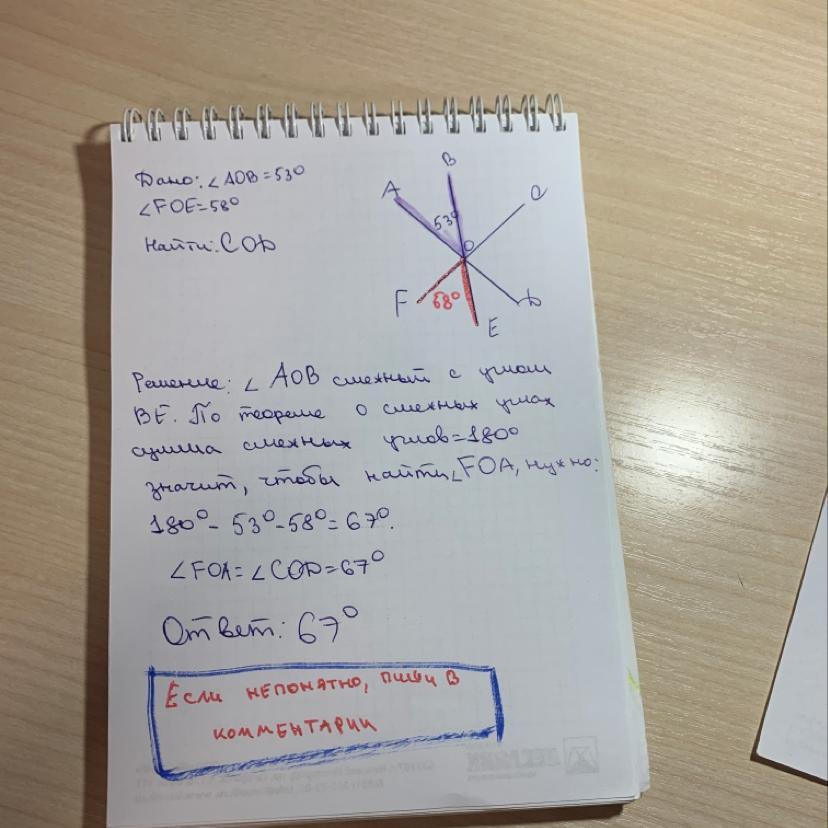 Дано: ∠AOB=53°
∠FOE=58°
Найти: COD
A
B
C
53°
O
F
58°
D
E
Решение: ∠ AOB смежный с углом
BE. По теореме о смежных углах
сумма смежных углов=180°
значит, чтобы найти ∠FOA, нужно:
180° - 53° - 58° = 67°.
∠FOA = ∠COD = 67°
Ответ: 67°
Если непонятно, пиши в
комментарии